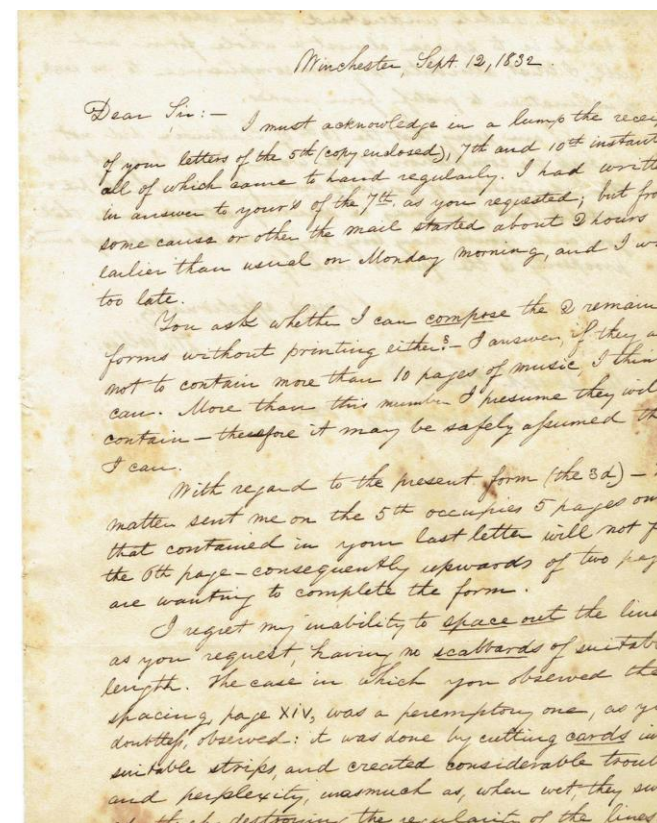 Winchester, Sept. 12, 1832.
Dear Sir:— I must acknowledge in a lump the recei
of your letters of the 5th (copy enclosed), 7th and 10th instant
all of which came to hand regularly. I had writte
in answer to your's of the 7th. as you requested; but fro
some cause or other the mail started about 2 hours
earlier than usual on Monday morning, and I w
too late.
You ask whether I can compose the 2 remain
forms without printing either?— I answer, if they a
not to contain more than 10 pages of music, I thin
can. More than this number I presume they wil
contain — therefore it may be safely assumed th
I can.
With regard to the present form (the 3d) —
matter sent me on the 5th occupies 5 pages on
that contained in your last letter will not f
the 6th page — consequently upwards of two pag
are wanting to complete the form.
I regret my inability to space out the line
as you request, having no scabbards of suitab
length. The case in which you observed the
spacing, page XIV, was a peremptory one, as y
doubtless, observed: it was done by cutting cards in
suitable strips, and created considerable troub
and perplexity, inasmuch as, when wet, they sw
destroying the regularity of the lines